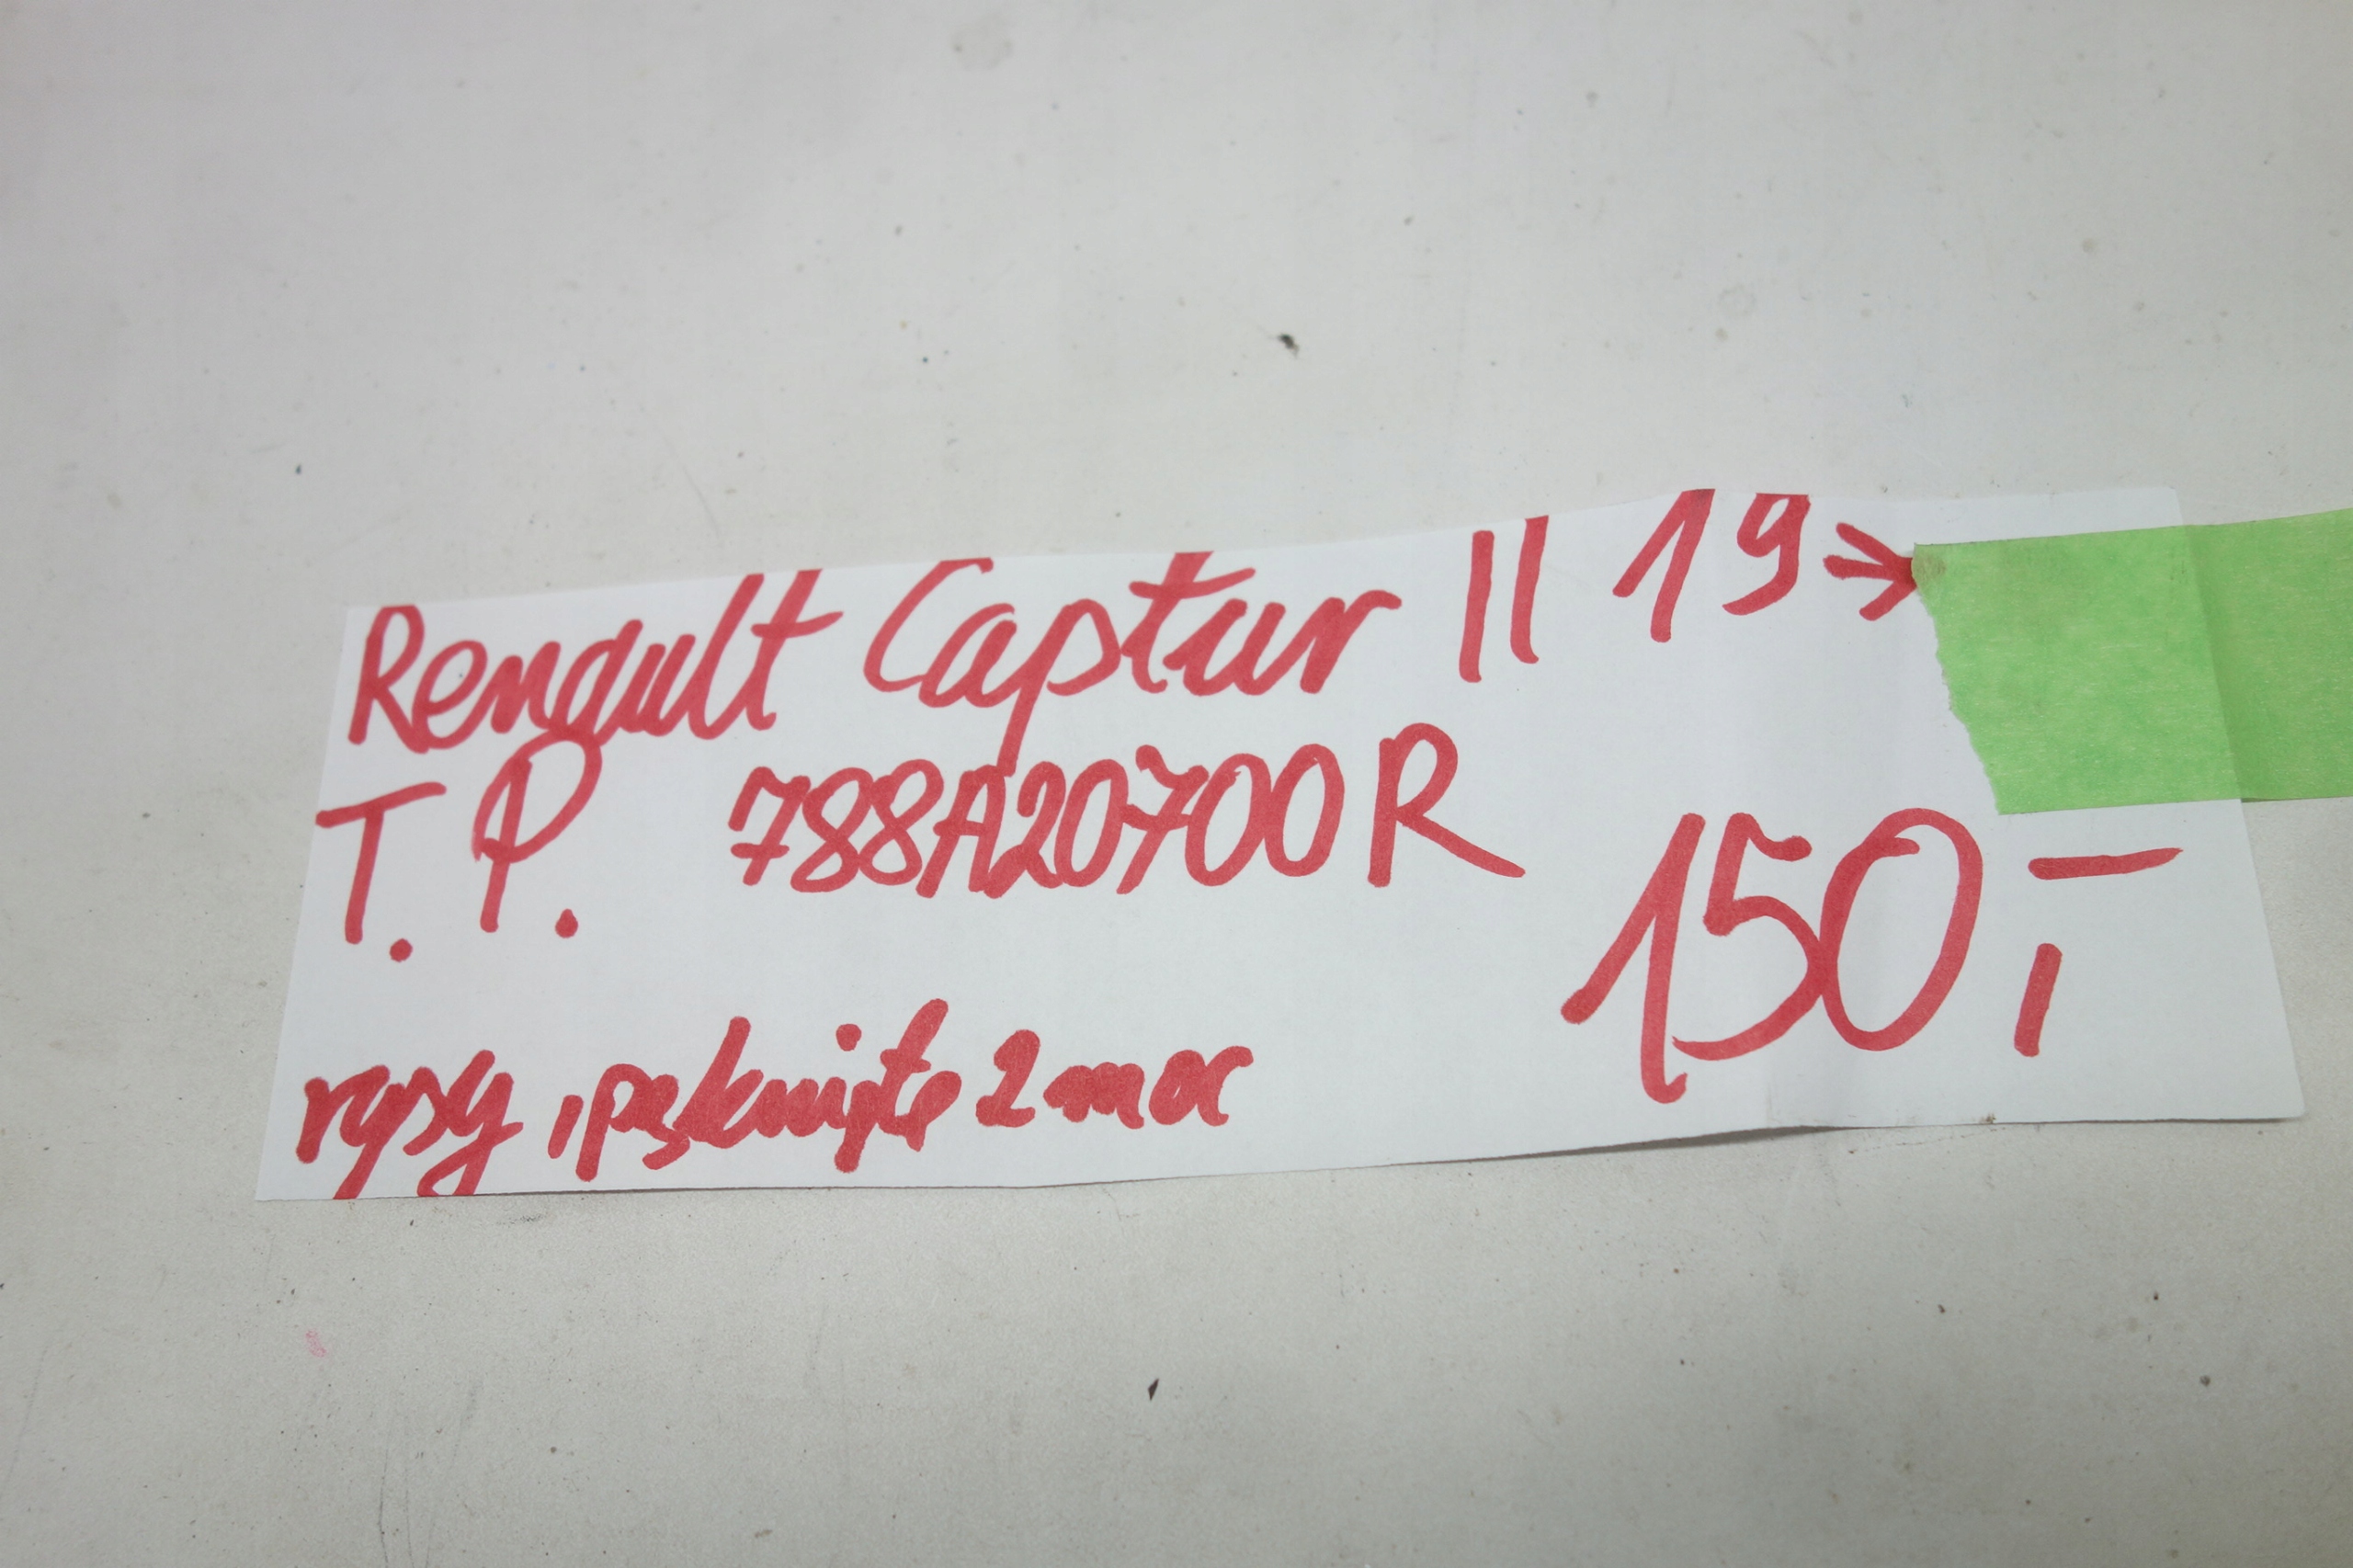 Renault Captur II 19→
T.P. 788A20700R
150,-
rysy, pęknięte 2 moc